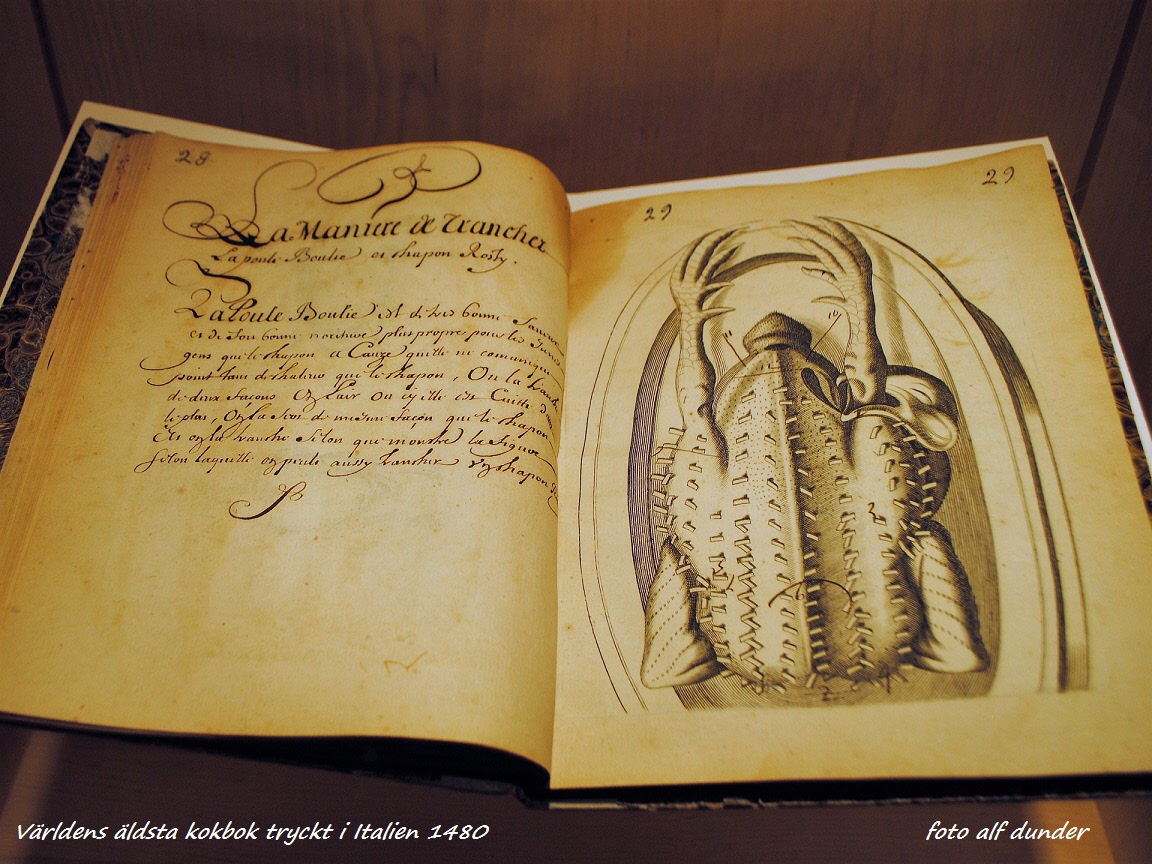 28
La Maniere de Trancher
La poule Boulie et chapon Rosty.
La Poule Boulie est de tres bonne
et de fort bonne noriture plus propre pour les
gens que le chapon a Cauze qu'elle ne comunique
point tant de chaleur que le chapon, On la tranche
de deux facons En l'air Ou
le plat, On la sert de mesme façon que le chapon
Et on la tranche selon que monstre la figure
selon laquelle on peult aussy trancher un chapon
29
29
Världens äldsta kokbok tryckt i Italien 1480
foto alf dunder